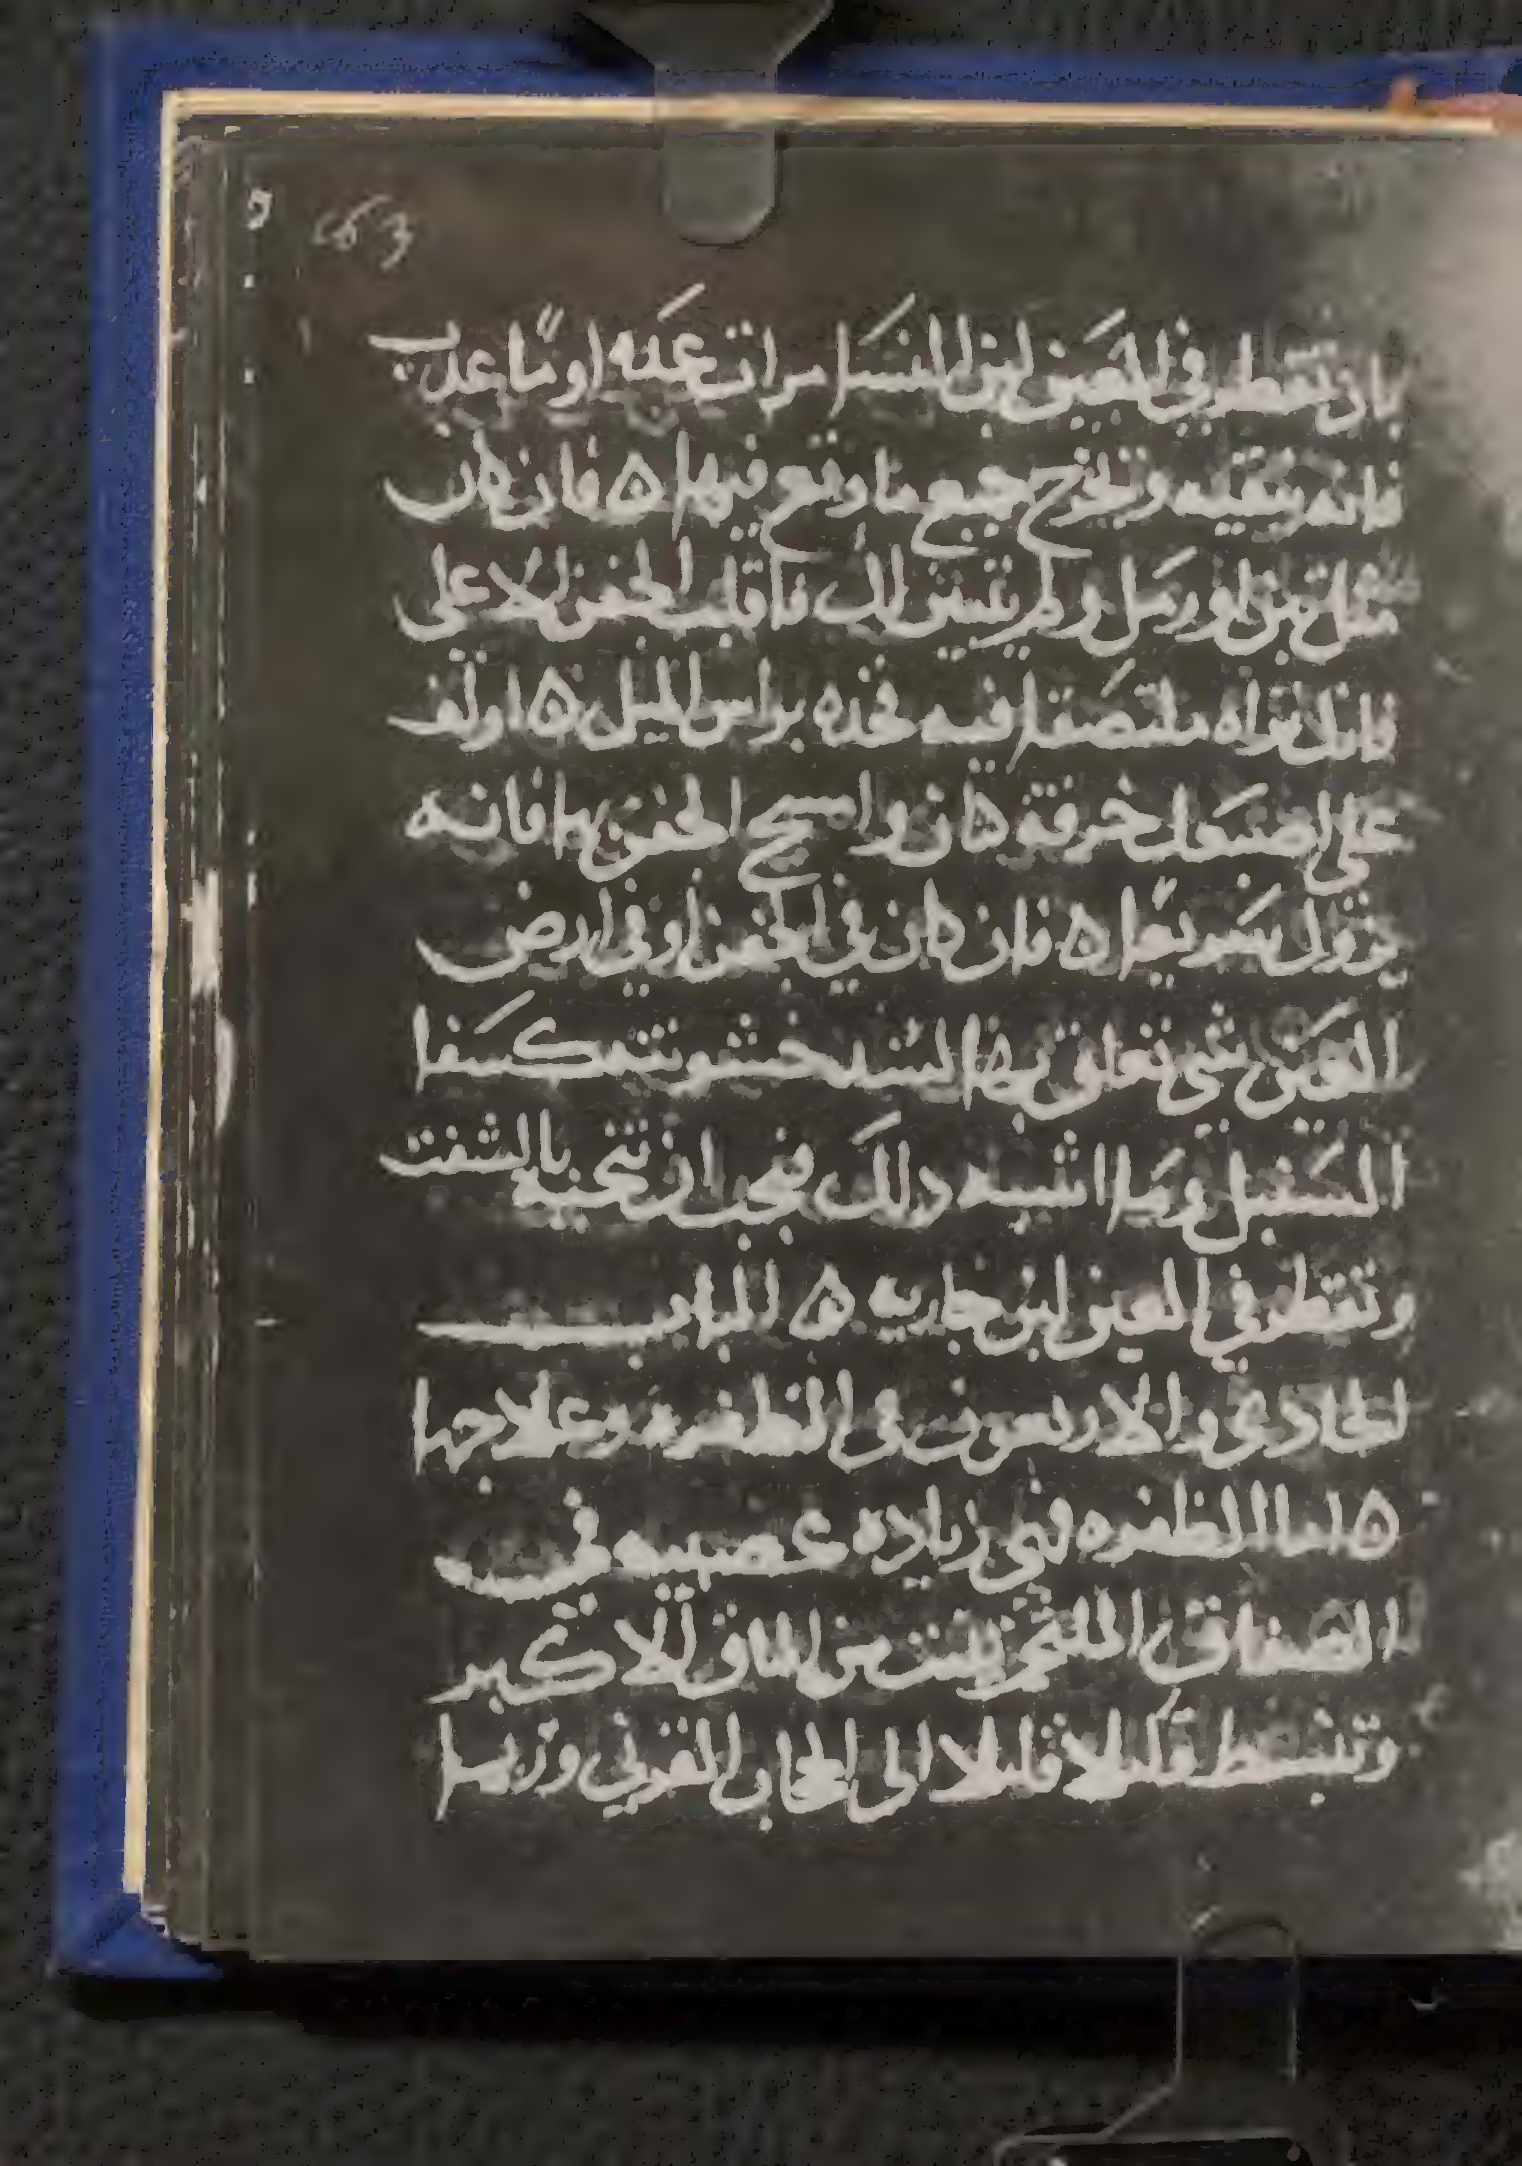 بان تقطر في العين لبن النسا مرات عده او مآ عذب
فانه ينقيه وتخرج جميع ما وقع فيها ۵ فان كان
مثل تبن او رمل ولم يتبين لك فاقلب الجفن الاعلى
فانك تراه ملتصقا فيه فخذه براس الميل ۵ او لف
على اصبعك خرقة كتان وامسح الجفن بها فانه
يزول سريعًا ۵ فان كان في الجفن او في ارض
العين شي تعلق بها لشده خشونته كسفا
السنبل وما اشبه ذلك فيجب ان تنحيه بالشفت
وتقطر في العين لبن جاريه ۵ الباب
الحادي والاربعون في الظفره وعلاجها
۵ اما الظفره فهي زياده عصبيه في
الصفاق الملتحم تنبت من الماق الاكبر
وتنبسط قليلا قليلا الى الحجاب القرني وربما